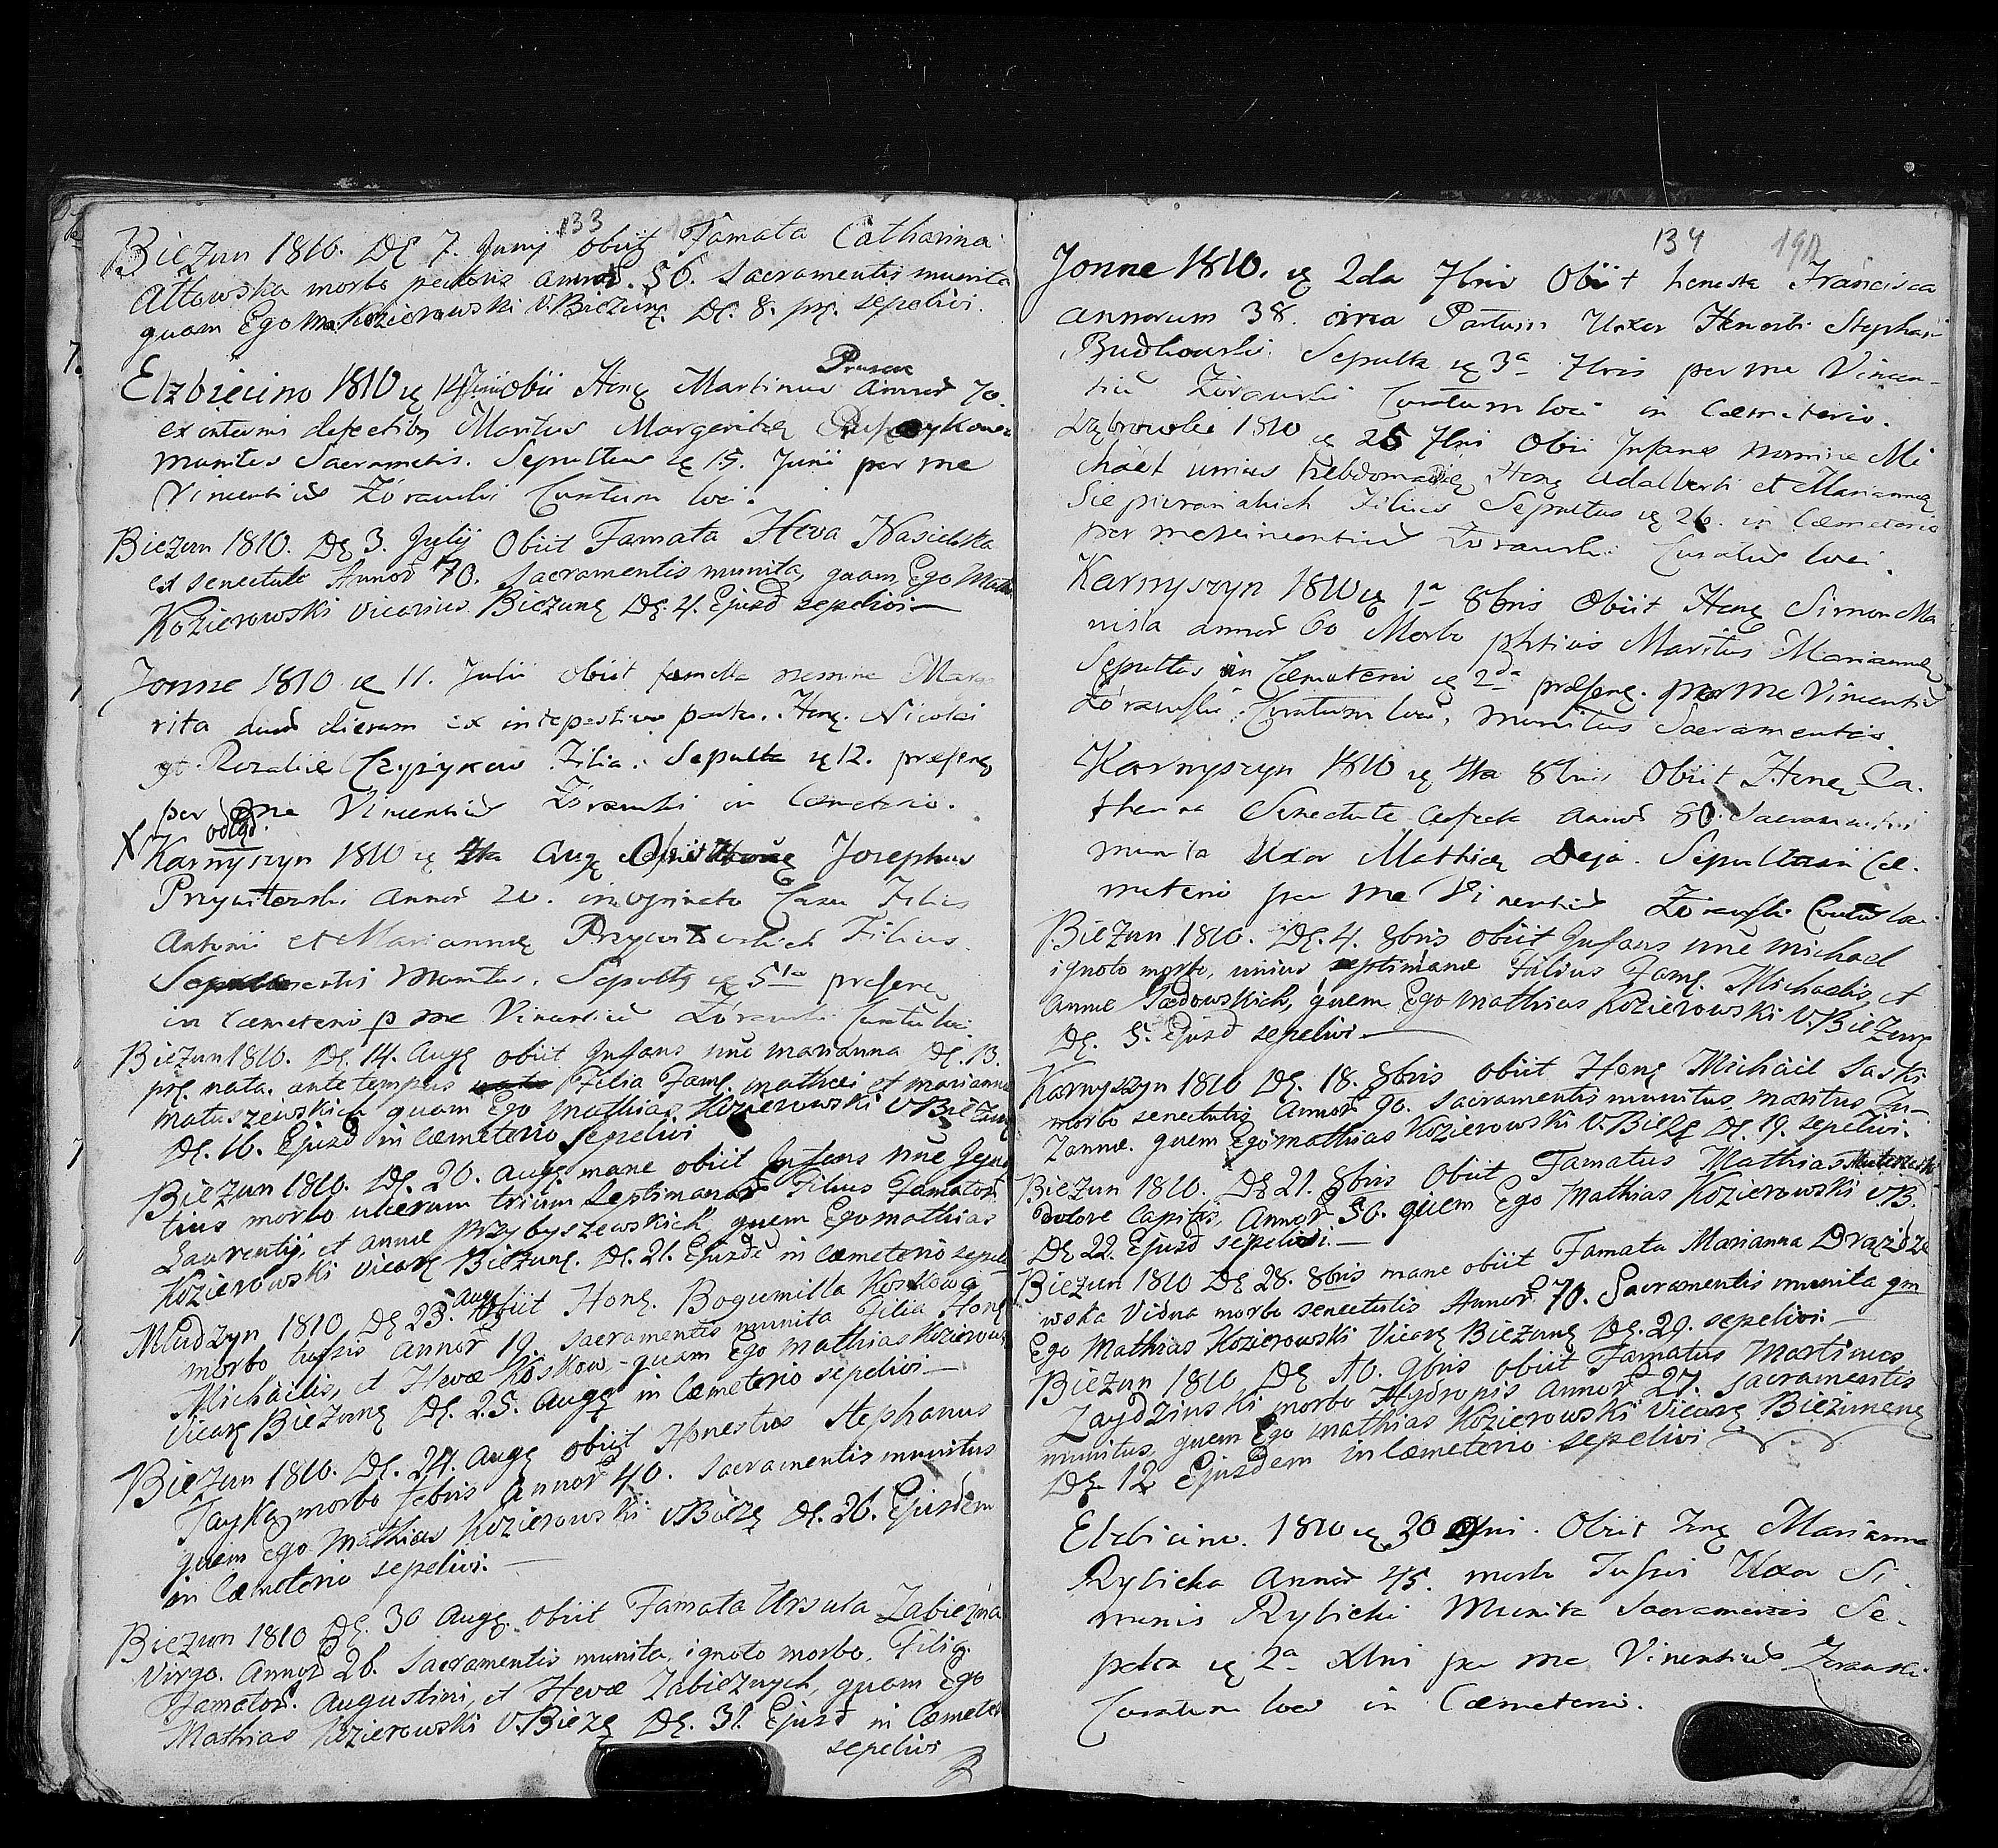 133
Biezun 1810. Dę 7. Junij obiit Famata Catharina
Attowska morbo pectoris annor. 56. Sacramentis munita
quam Ego Ma: Kozierowski V. Biezunę. Dę. 8. prę. sepelivi.
7.
Elzbiecino 1810 ę 14 Junii obii Honę Martinus Prusak Annor 70.
ex internis defectibus Maritus Margerithæ
munitus Sacrametis. Sepultus ę 15. Junii per me
Vincentiũ Żórawski Curatum loci.
Biezun 1810. Dę 3. Julij Obiit Famata Heva Nasielska
ex senectute Annor 70. Sacramentis munita, quam Ego Math
Kozierowski vicarius Biezunę Dę. 4. Ejusd sepelivi —
Jonne 1810 ę 11. Julii obiit famella nomine Marga
rita duor dierum ex intepestivo partu. Honę. Nicolai
et Rozaliæ Czyzykow Filia. Sepulta ę 12. præsenę
per me Vincentiũ Żórawski in Cæmeterio.
X odęd.
Karnyszyn 1810 ę 4ta Augę Obiit Honę Josephus
Przywiterski Annor 20. inopinato Casu Filius
Antonii et Mariannæ Przywiterskich Filius.
Sacramentis Munitus. Sepultus ę 5ta præsenę
in Cæmeterio p me Vincentiũ Żórawski Curatũ loci
Biezun 1810. Dę. 14. Augę obiit Jnfans nñe Marianna Dę. 13.
prę. nata. ante tempus Filia Famę. Mathæi et Mariannæ
Matuszewskich quam Ego Mathias Kozierowski V Biezunę
Dę. 16. Ejusd in Cæmeterio sepelivi
7
Biezun 1810. Dę. 20. Augę mane obiit Jnfans nñe Jgna
tius morbo ulcerum trium Septimanar Filius Famator
Laurentij, et Annæ Przybyszewskich, quem Ego Mathias
Kozierowski vicarę Biezunę. Dę. 21. Ejusdę in Cæmeterio sepeli
Mludzyn 1810 Dę 23. Augę Obiit Honę. Bogumilla Koskowa
morbo tussis Annor 19. Sacramentis munita Filia Honę
Michaëlis, et Hevæ Koskow - quam Ego Mathias Kozierows
Vicarę Biezunę Dę. 25. Augę in Cæmeterio sepelivi —
Biezun 1810. Dę. 24. Augę obiit Honestus Stephanus
Fayka morbo febris Annor 40. Sacramentis munitus
quem Ego Mathias Kozierowski V Biezę Dę. 26. Ejusdem
in Cæmeterio sepelivi. —
Biezun 1810 Dę. 30 Augę. obiit Famata Ursula Zabiezna
Virgo. Annor 26. Sacramentis munita, ignoto morbo, Filia
Famator. Augustini, et Hevæ Zabieznych, quam Ego
Mathias Kozierowski V. Biezę Dę. 31. Ejusd in Cæmeter
sepelivi
134
Jonne 1810. ę 2da 7bris Obiit honesta Francisca
annorum 38. circa Partum Uxor Honesti Stephani
Budkowski. Sepulta ę 3a 7bris per me Vincen-
tiũ Żórawski Curatum loci in Cæmeterio.
Dąbrowski 1810 ę 25 7bri Obii Jnfans nomine Mi
chaël unius hebdomadæ, Honę Adalberti et Mariannæ
Siepieranskich Filius Sepultus ę 26. in Cæmeterio
per me Vincentiũ Żórawski Curatũ loci.
Karnyszyn 1810 ę 1a 8bris Obiit Honę Simon Ma
nista annor 60 Morbo phtisis Maritus Mariannæ
Sepultus in Cæmeterio ę 2da præsenę. per me Vincentiũ
Żórawski Curatum loci, munitus Sacramentis.
Karnyszyn 1810 ę 4ta 8bris Obiit Honę Ca.
tharina Senectute Confecta Annor 80. Sacramentis
munita Uxor Mathiæ Deja. Sepulta in Cæ-
meterio per me Vincentiũ Żórawski Curatũ loci
Biezun 1810. Dę. 4. 8bris obiit Jnfans nñe Michael
ignoto morbo, unius septimanæ Filius Famę. Michaelis, et
Annæ Sadowskich, quem Ego Mathias Kozierowski V. Biezunę
Dę. 5. Ejusd sepelivi —
Karnyszyn 1810 Dę. 18. 8bris obiit Honę Michaël Saski
morbo senectutis Annor 90. Sacramentis munitus, maritus Zu-
zannæ. quem Ego Mathias Kozierowski V. Biezę Dę. 19. sepelivi.
Biezun 1810. Dę 21. 8bris Obiit Famatus Mathias
dolore Capitis, Annor 50. quem Ego Mathias Kozierowski V B.
Dę 22. Ejusd sepelivi. —
Biezun 1810 Dę 28. 8bris mane obiit Famata Marianna Drązdze
wska Vidua morbo senectutis Annor 70. Sacramentis munita qm
Ego Mathias Kozierowski Vicarę Biezunę Dę. 29. sepelivi. —
Biezun 1810 Dę 10. 9bris obiit Famatus Martinus
Zaydzinski morbo Hydropis Annor 27. Sacramentis
munitus, quem Ego Mathias Kozierowski Vicarę Biezunenę
Dę 12 Ejusdem in Cæmeterio sepelivi
Elzbicino. 1810 ę 30 9bri. Obiit Honę Marianna
Rybicka Annor 45. morbo Tussis Uxor Si-
munis Rybicki Munita Sacramentis Se-
pulta ę 2a Xbri per me Vincentiũ Żórawski
Curatum loci in Cæmeterio.